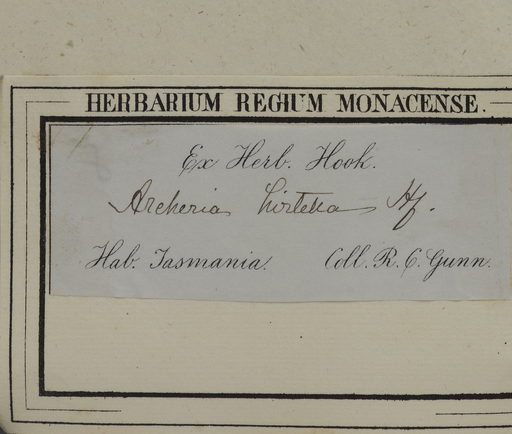 HERBARIUM REGIUM MONACENSE.
Ex Herb. Hook.
Archeria hirtella Hf.
Hab. Tasmania. Coll. R. C. Gunn.